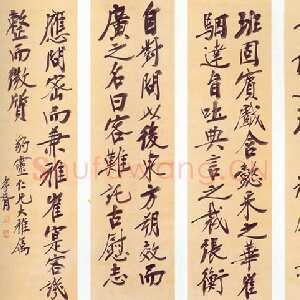 班固賓戲含懿采之華崔
駰達旨吐典言之裁張衡
自對問以後東方朔效而
廣之名曰客難託古慰志
應間密而兼雅崔寔客譏
整而微質
仁兄大雅屬
Shufawang.CN